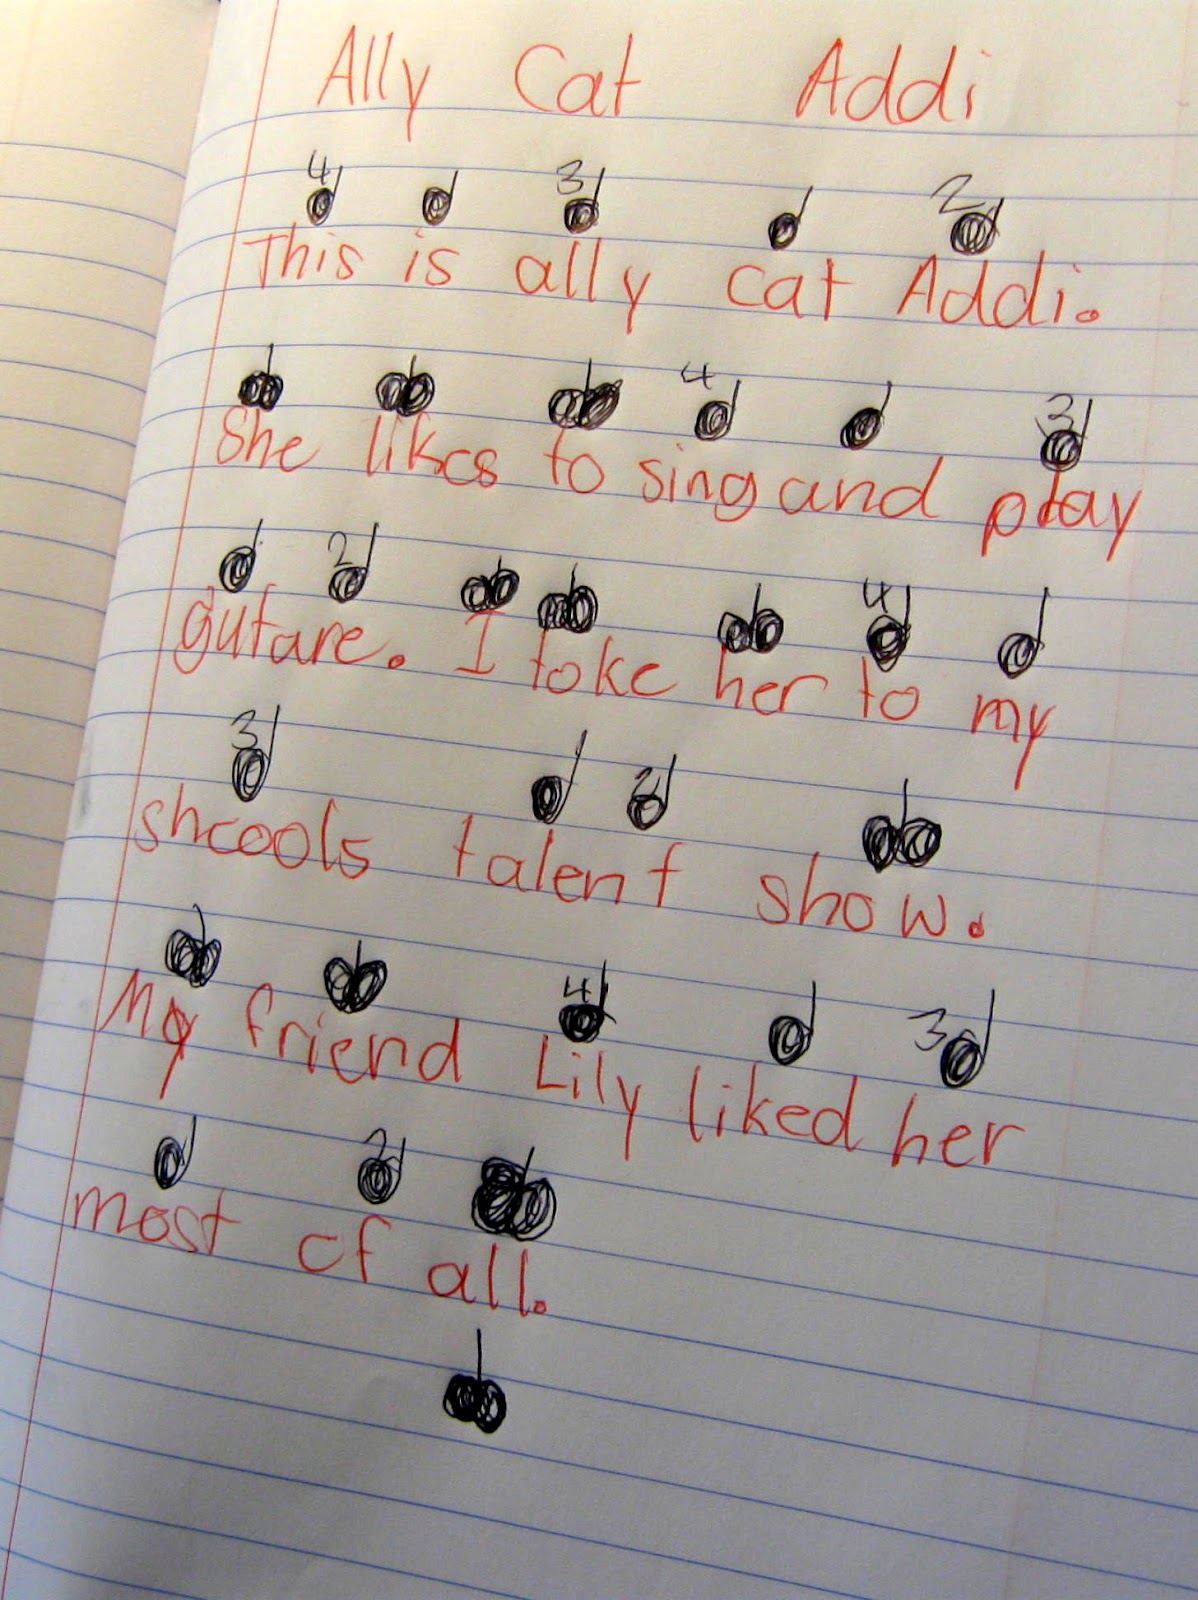 Ally Cat Addi
4 3 2
This is ally cat Addi.
4 3
She likes to sing and play
2 4
gutare. I toke her to my
3 2
shcools talent show.
4 3
My friend Lily liked her
2
most of all.